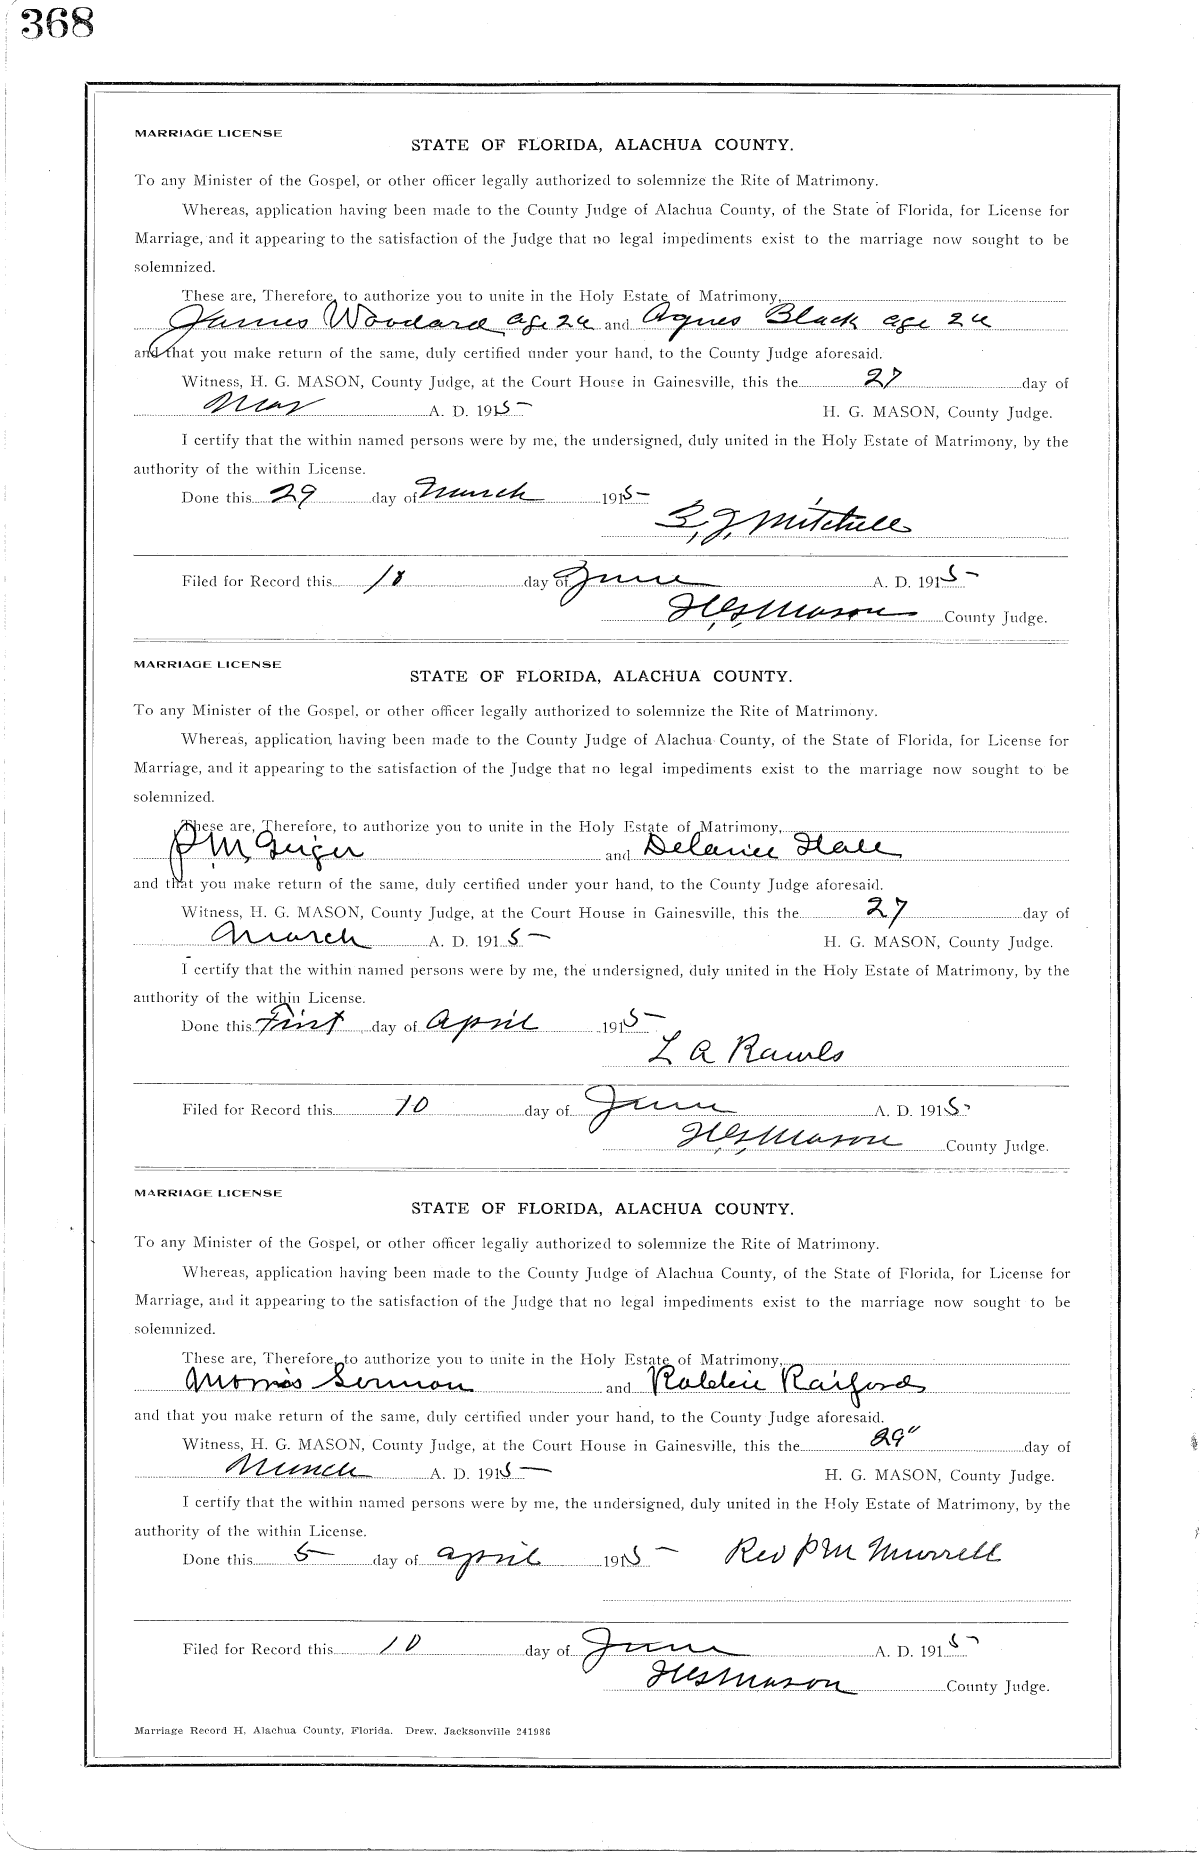 368
MARRIAGE LICENSE
STATE OF FLORIDA, ALACHUA COUNTY.
To any Minister of the Gospel, or other officer legally authorized to solemnize the Rite of Matrimony.
Whereas, application having been made to the County Judge of Alachua County, of the State of Florida, for License for
Marriage, and it appearing to the satisfaction of the Judge that no legal impediments exist to the marriage now sought to be
solemnized.
These are, Therefore, to authorize you to unite in the Holy Estate of Matrimony,
James Woodard age 24 and Agnes Black age 24
and that you make return of the same, duly certified under your hand, to the County Judge aforesaid.
Witness, H. G. MASON, County Judge, at the Court House in Gainesville, this the 27 day of
Mar A. D. 1915 H. G. MASON, County Judge.
I certify that the within named persons were by me, the undersigned, duly united in the Holy Estate of Matrimony, by the
authority of the within License.
Done this 29 day of March 1915
Mitchell
Filed for Record this 10 day of June A. D. 1915
H. G. Mason County Judge.
MARRIAGE LICENSE
STATE OF FLORIDA, ALACHUA COUNTY.
To any Minister of the Gospel, or other officer legally authorized to solemnize the Rite of Matrimony.
Whereas, application having been made to the County Judge of Alachua County, of the State of Florida, for License for
Marriage, and it appearing to the satisfaction of the Judge that no legal impediments exist to the marriage now sought to be
solemnized.
These are, Therefore, to authorize you to unite in the Holy Estate of Matrimony,
P. M. Geiger and Hall
and that you make return of the same, duly certified under your hand, to the County Judge aforesaid.
Witness, H. G. MASON, County Judge, at the Court House in Gainesville, this the 27 day of
March A. D. 1915 H. G. MASON, County Judge.
I certify that the within named persons were by me, the undersigned, duly united in the Holy Estate of Matrimony, by the
authority of the within License.
Done this First day of April 1915
L A Rawls
Filed for Record this 10 day of June A. D. 1915
H. G. Mason County Judge.
MARRIAGE LICENSE
STATE OF FLORIDA, ALACHUA COUNTY.
To any Minister of the Gospel, or other officer legally authorized to solemnize the Rite of Matrimony.
Whereas, application having been made to the County Judge of Alachua County, of the State of Florida, for License for
Marriage, and it appearing to the satisfaction of the Judge that no legal impediments exist to the marriage now sought to be
solemnized.
These are, Therefore, to authorize you to unite in the Holy Estate of Matrimony,
Morris and Raiford
and that you make return of the same, duly certified under your hand, to the County Judge aforesaid.
Witness, H. G. MASON, County Judge, at the Court House in Gainesville, this the 29" day of
March A. D. 1915 H. G. MASON, County Judge.
I certify that the within named persons were by me, the undersigned, duly united in the Holy Estate of Matrimony, by the
authority of the within License.
Done this 5 day of April 1915 Rev P M Murrell
Filed for Record this 10 day of June A. D. 1915
H G Mason County Judge.
Marriage Record H, Alachua County, Florida. Drew, Jacksonville 241986